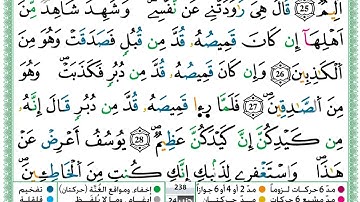 أَلِيمٌ ﴿25﴾ قَالَ هِيَ رَٰوَدَتْنِي عَن نَّفْسِي ۚ وَشَهِدَ شَاهِدٌ مِّنْ
أَهْلِهَا إِن كَانَ قَمِيصُهُۥ قُدَّ مِن قُبُلٍ فَصَدَقَتْ وَهُوَ مِنَ
ٱلْكَٰذِبِينَ ﴿26﴾ وَإِن كَانَ قَمِيصُهُۥ قُدَّ مِن دُبُرٍ فَكَذَبَتْ وَهُوَ
مِنَ ٱلصَّٰدِقِينَ ﴿27﴾ فَلَمَّا رَءَا قَمِيصَهُۥ قُدَّ مِن دُبُرٍ قَالَ إِنَّهُۥ
مِن كَيْدِكُنَّ ۖ إِنَّ كَيْدَكُنَّ عَظِيمٌ ﴿28﴾ يُوسُفُ أَعْرِضْ عَنْ
هَٰذَا ۚ وَٱسْتَغْفِرِي لِذَنۢبِكِ ۖ إِنَّكِ كُنتِ مِنَ ٱلْخَاطِـِٔينَ
مدّ 6 حركات لزوماً مدّ 2 أو 4 أو 6 جوازاً 238 إخفاء، ومواقع الغُنَّة (حركتان) تفخيم
مدّ مشبع 6 حركات مدّ حركتان حزب 24 إدغام، وما لا يُلفَظ قلقلة